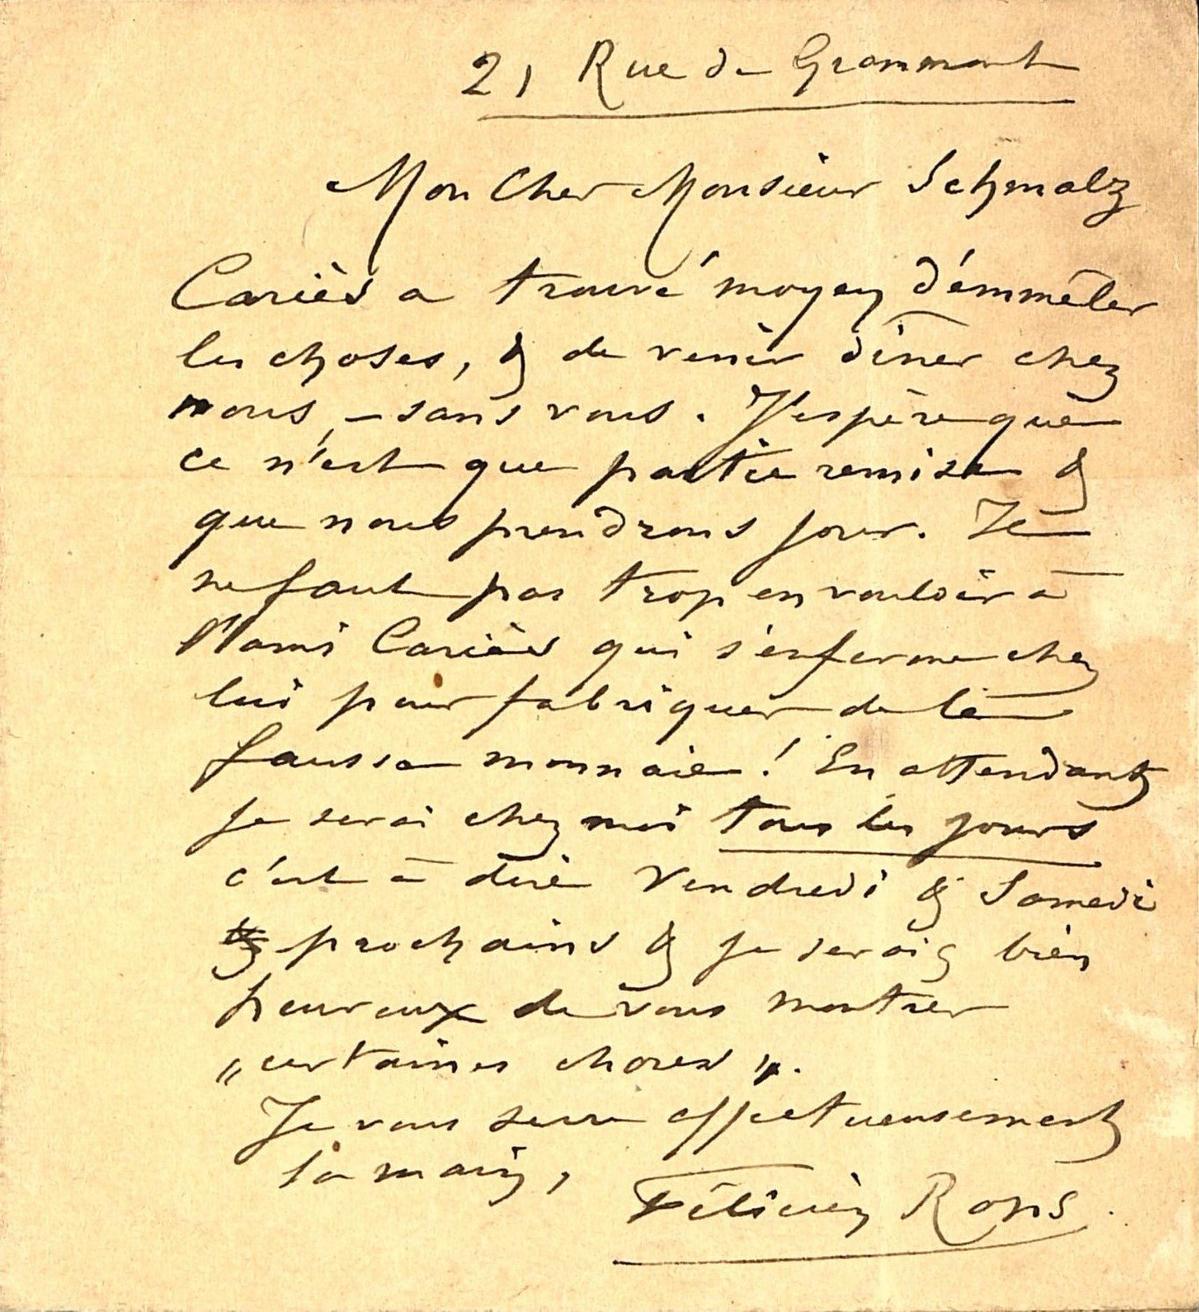 21 Rue de Grammont
Mon Cher Monsieur Schmalz
Cariès a trouvé moyen d'émmêler
les choses, & de venir dîner chez
nous, – sans vous. J'espère que
ce n'est que partie remise &
que nous prendrons jour. Il
ne faut pas trop en vouloir à
l'ami Cariès qui s'enferme chez
lui pour fabriquer de la
fausse monnaie ! En attendant
je serai chez moi tous les jours
c'est à dire Vendredi & Samedi
prochains & je serais bien
heureux de vous montrer
„certaines choses".
Je vous serre affectueusement
la main,
Félicien Rops